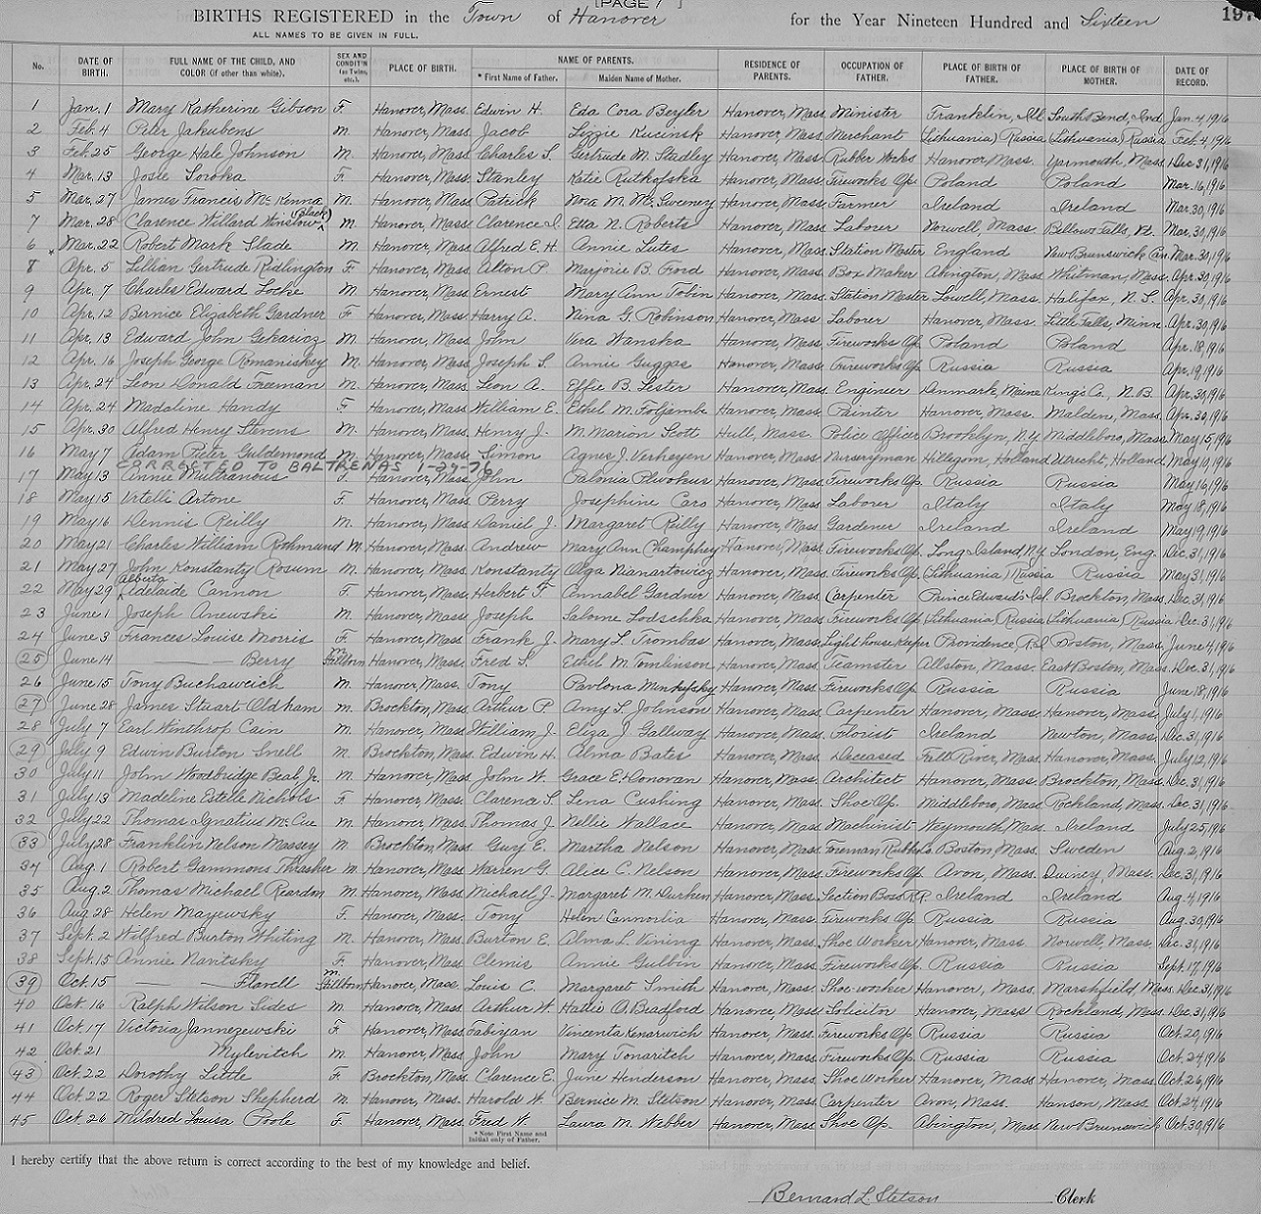 [PAGE 7]
BIRTHS REGISTERED in the Town of Hanover for the Year Nineteen Hundred and Sixteen 197
ALL NAMES TO BE GIVEN IN FULL.
No. DATE OF BIRTH. FULL NAME OF THE CHILD, AND COLOR (if other than white). SEX AND CONDIT'N (as Twins, etc.). PLACE OF BIRTH. NAME OF PARENTS. * First Name of Father. Maiden Name of Mother. RESIDENCE OF PARENTS. OCCUPATION OF FATHER. PLACE OF BIRTH OF FATHER. PLACE OF BIRTH OF MOTHER. DATE OF RECORD.
1 Jan. 1 Mary Katherine Gibson F Hanover, Mass. Edwin H. Eda Cora Beyler Hanover, Mass. Minister Franklin, Ill South Bend, Ind. Jan. 4, 1916
2 Feb. 4 Peter Jakubens M. Hanover, Mass. Jacob Lizzie Kucinsk Hanover, Mass. Merchant (Lithuania) Russia (Lithuania) Russia Feb. 4, 1916
3 Feb. 25 George Hale Johnson M. Hanover, Mass. Charles S. Gertrude M. Studley Hanover, Mass. Rubber Works Hanover, Mass. Yarmouth, Mass. Dec 31, 1916
4 Mar. 13 Josie Soroka F Hanover, Mass. Stanley Katie Rutkofska Hanover, Mass. Fireworks Op. Poland Poland Mar. 16, 1916
5 Mar. 27 James Francis McKenna M. Hanover, Mass. Patrick Nora M. McSweney Hanover, Mass. Farmer Ireland Ireland Mar. 30, 1916
7 Mar. 28 Clarence Willard Winslow (Black) M. Hanover, Mass. Clarence I. Etta N. Roberts Hanover, Mass. Laborer Norwell, Mass Bellows Falls, Vt. Mar. 30, 1916
6 Mar. 22 Robert Mark Slade M. Hanover, Mass. Alfred E. H. Annie Lutes Hanover, Mass. Station Master England New Brunswick Can. Mar. 30, 1916
8 Apr. 5 Lillian Gertrude Ridlington F Hanover, Mass. Alton P. Marjorie B. Ford Hanover, Mass. Box Maker Abington, Mass. Whitman, Mass. Apr. 30, 1916
9 Apr. 7 Charles Edward Locke M. Hanover, Mass. Ernest Mary Ann Tobin Hanover, Mass. Station Master Lowell, Mass. Halifax, N. S. Apr. 30, 1916
10 Apr. 12 Bernice Elizabeth Gardner F Hanover, Mass. Harry A. Nina G. Robinson Hanover, Mass. Laborer Hanover, Mass. Little Falls, Minn. Apr. 30, 1916
11 Apr. 13 Edward John M. Hanover, Mass. John Vera Wanska Hanover, Mass. Fireworks Op. Poland Poland Apr. 18, 1916
12 Apr. 16 Joseph George Romaniskey M. Hanover, Mass. Joseph S. Annie Guggas Hanover, Mass. Fireworks Op. Russia Russia Apr. 19, 1916
13 Apr. 24 Leon Donald Freeman M. Hanover, Mass. Leon A. Effie B. Lester Hanover, Mass. Engineer Denmark, Maine Kings Co., N.B. Apr. 30, 1916
14 Apr. 24 Madaline Handy F Hanover, Mass. William E. Ethel M. Foljambe Hanover, Mass. Painter Hanover, Mass. Malden, Mass. Apr. 1916
15 Apr. 30 Alfred Henry Stevens M. Hanover, Mass. Henry J. M. Marion Scott Hull, Mass. Police Officer Brooklyn, N.Y. Middleboro, Mass. May 15, 1916
16 May 7 Adam Pieter Guldemond M. Hanover, Mass. Simon Agnes J. Verheyen Hanover, Mass. Nurseryman Hillegom, Holland Utrecht, Holland May 10, 1916
CORRECTED TO BALTRENAS 1-29-76
17 May 13 Annie Multranous F Hanover, Mass. John Palonia Hanover, Mass. Fireworks Op. Russia Russia May 16, 1916
18 May 15 Urtelli Artone F. Hanover, Mass. Perry Josephine Caro Hanover, Mass. Laborer Italy Italy May 18, 1916
19 May 16 Dennis Reilly M. Hanover, Mass. Daniel J. Margaret Reilly Hanover, Mass. Gardener Ireland Ireland May 19, 1916
20 May 21 Charles William Rothmund M. Hanover, Mass. Andrew Mary Ann Champhey Hanover, Mass. Fireworks Op. Long Island, N.Y. London, Eng. Dec. 31, 1916
21 May 27 John Konstanty Rosum M. Hanover, Mass. Konstanty Olga Nianartowicz Hanover, Mass. Fireworks Op. (Lithuania) Russia Russia May 31, 1916
22 May 29 Alberta Adelaide Cannon F. Hanover, Mass. Herbert F. Annabel Gardner Hanover, Mass. Carpenter Prince Edward's Isl. Brockton, Mass. Dec. 31, 1916
23 June 1 Joseph Anewski M. Hanover, Mass. Joseph Salome Lodschka Hanover, Mass. Fireworks Op. (Lithuania) Russia (Lithuania) Russia Dec. 31, 1916
24 June 3 Frances Louise Morris F. Hanover, Mass. Frank J. Mary L. Trombas Hanover, Mass. Light house Keeper Providence, R.I. Boston, Mass. June 4, 1916
25 June 14 Berry Stillborn Hanover, Mass. Fred S. Ethel M. Tomlinson Hanover, Mass. Teamster Allston, Mass. East Boston, Mass. Dec. 31, 1916
26 June 15 Tony Buchaweich M. Hanover, Mass. Tony Pavlona Minkufsky Hanover, Mass. Fireworks Op. Russia Russia June 18, 1916
27 June 28 James Stuart Oldham M. Brockton, Mass. Arthur P. Amy L. Johnson Hanover, Mass. Carpenter Hanover, Mass. Hanover, Mass. July 1, 1916
28 July 7 Earl Winthrop Cain M. Hanover, Mass. William J. Eliza J. Gallway Hanover, Mass. Florist Ireland Newton, Mass. Dec. 31, 1916
29 July 9 Edwin Burton Snell M. Brockton, Mass. Edwin H. Alma Bates Hanover, Mass. Deceased Fall River, Mass. Hanover, Mass. July 12, 1916
30 July 11 John Woodbridge Beal, Jr. M. Hanover, Mass. John W. Grace E. Donovan Hanover, Mass. Architect Hanover, Mass. Brockton, Mass. Dec. 31, 1916
31 July 13 Madeline Estelle Nichols F Hanover, Mass. Clarence S. Lena Cushing Hanover, Mass. Shoe Op. Middleboro, Mass. Rockland, Mass. Dec. 31, 1916
32 July 22 Thomas Ignatius McCue M. Hanover, Mass. Thomas J. Nellie Wallace Hanover, Mass. Machinist Weymouth, Mass. Ireland July 25, 1916
33 July 28 Franklin Nelson Massey M. Brockton, Mass. Guy E. Martha Nelson Hanover, Mass. Foreman Rubber Co. Boston, Mass. Sweden Aug. 2, 1916
34 Aug. 1 Robert Gammons Thrasher M. Hanover, Mass. Warren G. Alice C. Nelson Hanover, Mass. Fireworks Op. Avon, Mass. Quincy, Mass. Dec. 31, 1916
35 Aug. 2 Thomas Michael Reardon M. Hanover, Mass. Michael J. Margaret M. Durken Hanover, Mass. Section Boss R.R. Ireland Ireland Aug. 4, 1916
36 Aug. 28 Helen Mayewsky F. Hanover, Mass. Tony Helen Cannorlia Hanover, Mass. Fireworks Op. Russia Russia Aug. 30, 1916
37 Sept. 2 Wilfred Burton Whiting M. Hanover, Mass. Burton E. Alma L. Vining Hanover, Mass. Shoe Worker Hanover, Mass. Norwell, Mass. Dec. 31, 1916
38 Sept. 15 Annie Navitsky F. Hanover, Mass. Clemis Annie Gulbin Hanover, Mass. Fireworks Op. Russia Russia Sept. 17, 1916
39 Oct. 15 Flavell M. Stillborn Hanover, Mass. Louis C. Margaret Smith Hanover, Mass. Shoe worker Hanover, Mass. Marshfield, Mass. Dec. 31, 1916
40 Oct. 16 Ralph Wilson Sides M. Hanover, Mass. Arthur W. Hattie O. Bradford Hanover, Mass. Solicitor Hanover, Mass Rockland, Mass. Dec. 31, 1916
41 Oct. 17 Victoria Jannezewski F Hanover, Mass. Fabiyan Vincenta Hanover, Mass. Fireworks Op. Russia Russia Oct. 20, 1916
42 Oct. 21 Mylevitch M. Hanover, Mass. John Mary Tonaritch Hanover, Mass. Fireworks Op. Russia Russia Oct. 24, 1916
43 Oct. 22 Dorothy Little F. Brockton, Mass. Clarence E. June Henderson Hanover, Mass. Shoe Worker Hanover, Mass. Hanover, Mass. Oct. 26, 1916
44 Oct. 22 Roger Stetson Shepherd M. Hanover, Mass. Harold W. Bernice M. Stetson Hanover, Mass. Carpenter Avon, Mass. Hanson, Mass. Oct. 24, 1916
45 Oct. 26 Mildred Louisa Poole F. Hanover, Mass. Fred W. Laura M. Webber Hanover, Mass. Shoe Op. Abington, Mass New Brunswick Oct. 30, 1916
* Note: First Name and Initial only of Father.
I hereby certify that the above return is correct according to the best of my knowledge and belief.
Bernard L. Stetson Clerk